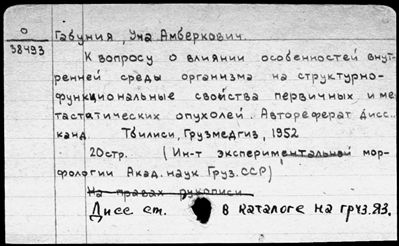 0
38493
Габуния, Уча Амберкович.
К вопросу о влиянии особенностей внут-
ренней среды организма на структурно-
функциональные свойства первичных и ме
тастатических опухолей. Автореферат дисс..
канд. Тбилиси, Грузмедгиз, 1952
20стр. (Ин-т экспериментальной мор-
фологии Акад. наук Груз.ССР)
На правах рукописи
Дисс ст. в каталоге на груз.яз.